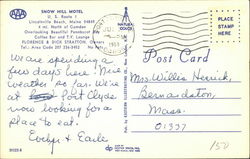 SNOW HILL MOTEL
U. S. Route 1
Lincolnville Beach, Maine 04849
4 mi. North of Camden
Overlooking Beautiful Penobscot Bay
Coffee Bar and T.V. Lounge
FLORENCE & DICK STRATTON, Owners
Tel. Area Code 207 236-3452
We are spending a
few days here. Nice
weather so far. We're
at Port Clyde
now looking for a
place to eat.
Evelyn & Earle
Post Card
Mrs. Willis Herrick
Bernardston,
Mass.
01337
PLACE
STAMP
HERE
150